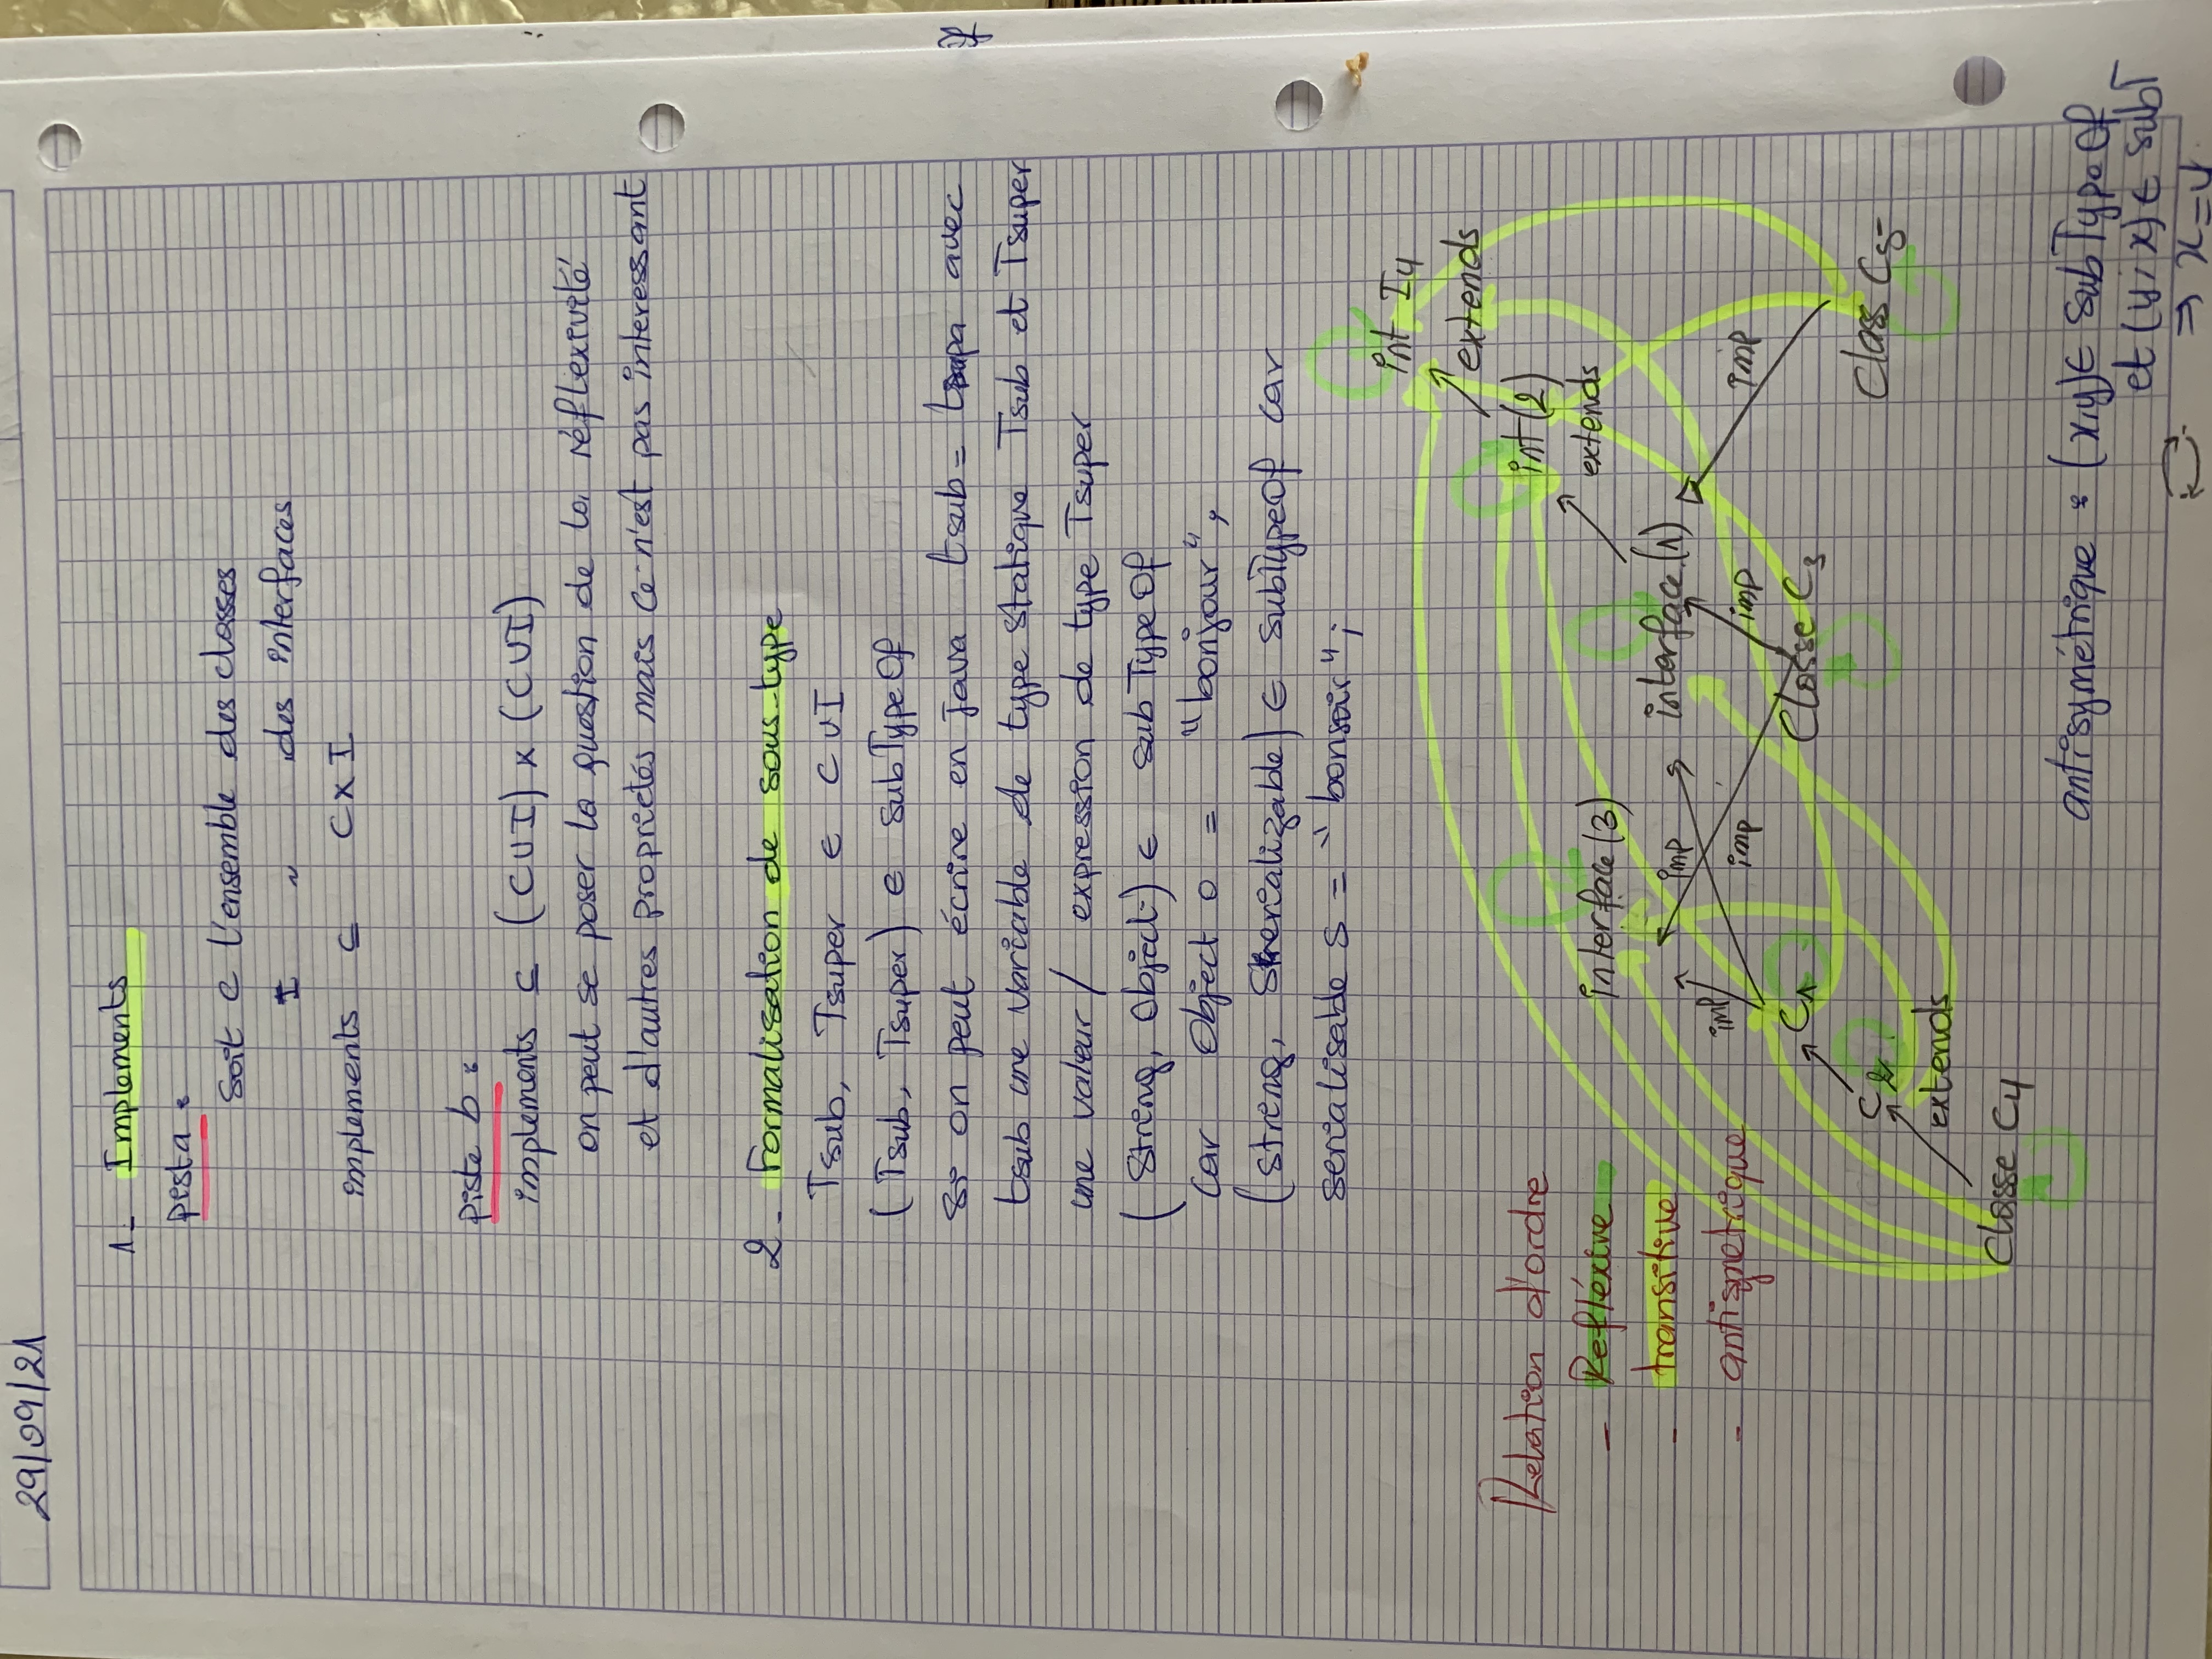 29/09/21
1- Implements
pista :
Soit C l'ensemble des classes
I ~ des interfaces
implements ⊆ C x I
piste b :
implements ⊆ (C U I) x (C U I)
on peut se poser la question de la réflexivité
et d'autres propriétés mais ce n'est pas interessant
2- Formalisation de sous-type
Tsub, Tsuper ∈ C U I
(Tsub, Tsuper) ∈ subTypeOf
Si on peut écrire en java tsub = avec
tsub une variable de type statique Tsub et Tsuper
une valeur / expression de type Tsuper
(String, Object) ∈ subTypeOf
Car Object o = "bonjour",
(String, Serealizable) ∈ subTypeOf car
serialisable s = "bonsoir";
int I4
extends
Relation d'ordre
int(2)
- Refléxive
interface(3)
extends
- transitive
imp
interface(1)
- antisymetrique
imp
imp
imp
imp
C1
Classe C3
C2
Class C5
extends
Classe C4
antisymétrique : (x,y) ∈ SubTypeOf
et (y,x) ∈ subT
⇒ x=y